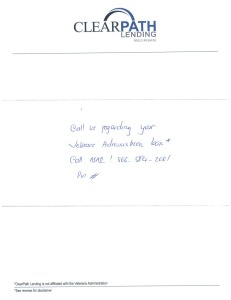 CLEARPATH
LENDING
Call us regarding your
Veterans Administration loan *
Call NOW!
*ClearPath Lending is not affiliated with the Veterans Administration
*See reverse for disclaimer